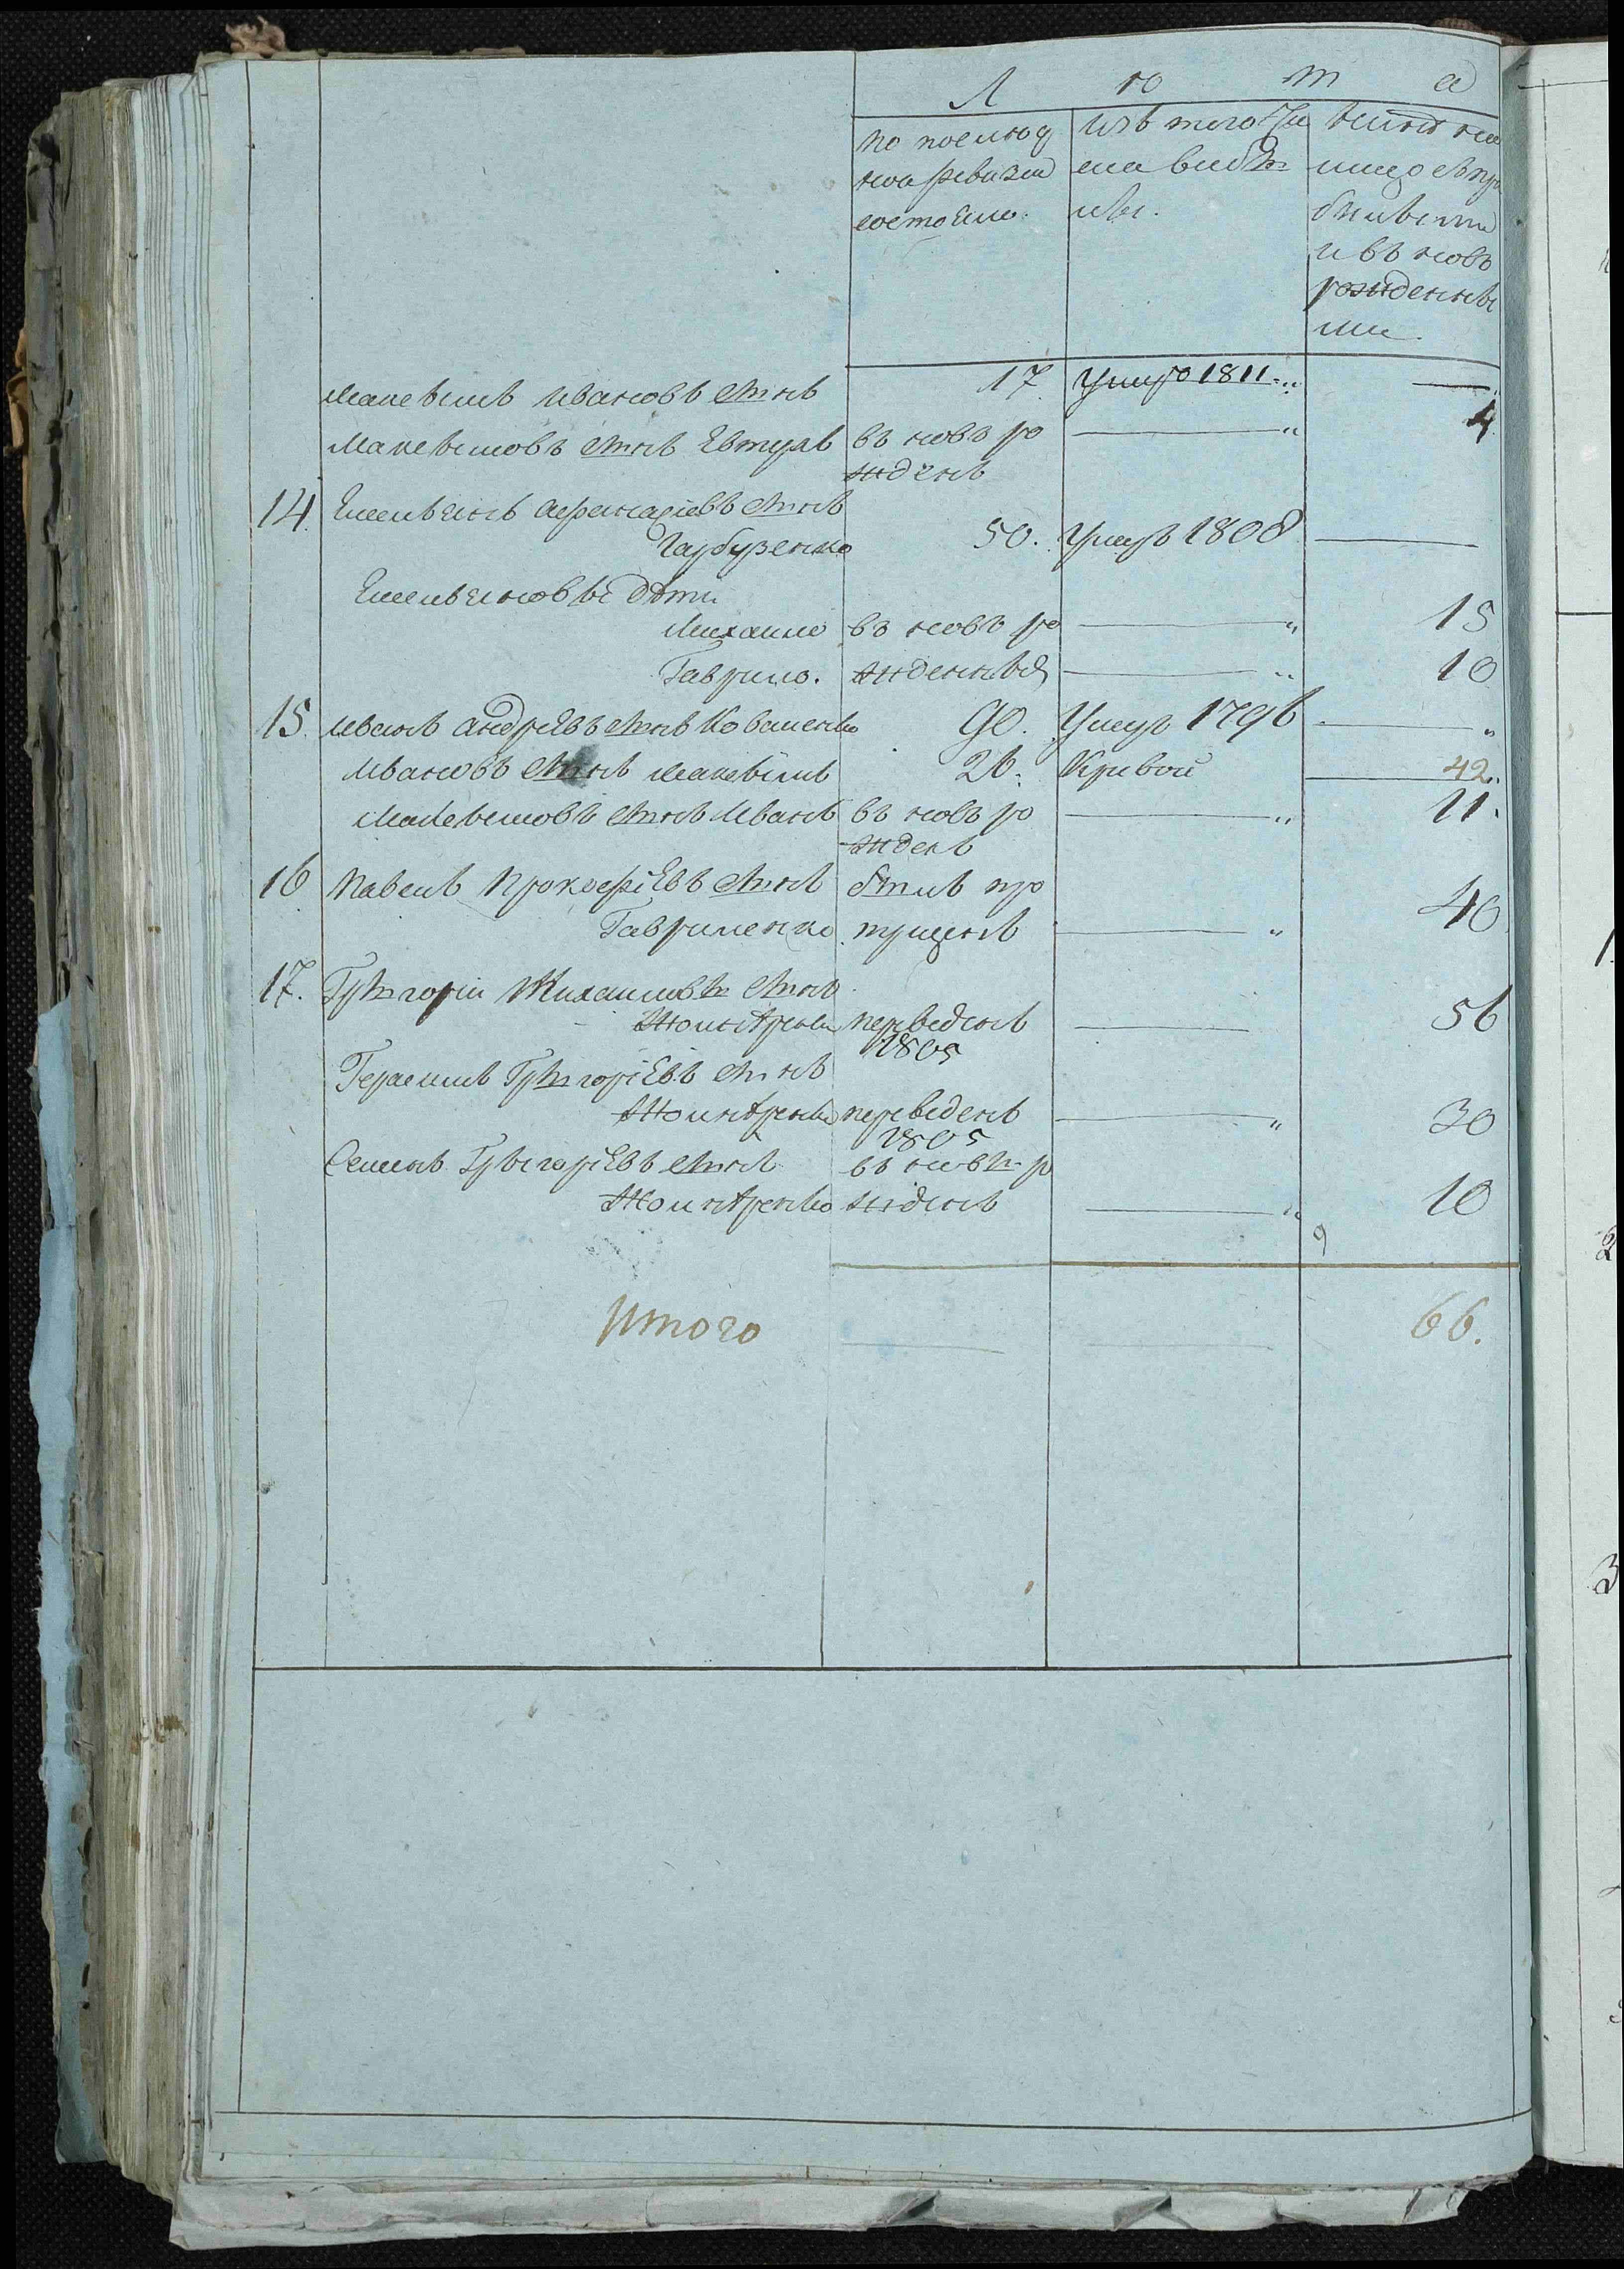 Л ю т а
по послюд
ной ревизіи
состояло.
изъ того чи
сла выбы
лы.
нынѣ на
лицо съ пр
былыми
и въ новъ
рожденны
ми
Максымъ Ивановъ сынъ 17 Умеръ 1811 —
Максымовъ сынъ Евтухъ въ новъ ро — 4
жденъ
14. Емельянъ Афанасіевъ сынъ
Гарбузенко 50. Умеръ 1808 —
Емельяновы дѣти
Михаило въ новъ ро — 15
Гаврило. жденныя — 10
15. Иванъ Андрѣевъ сынъ Коваленко 90. Умеръ 1796 —
Ивановъ сынъ Максымъ 26. Кривой 42.
Максымовъ сынъ Иванъ въ новъ ро — 11.
жденъ
16 Павелъ Прокофіевъ сынъ былъ про
Гавриленко пущенъ — 40
17. Грыгорій Михаиловъ сынъ
переведенъ — 56
1805
Герасимъ Грыгоріевъ сынъ
переведенъ — 30
1805
Семенъ Грыгоріевъ сынъ въ новъ ро
жденъ — 10
9
Итого — — 66.